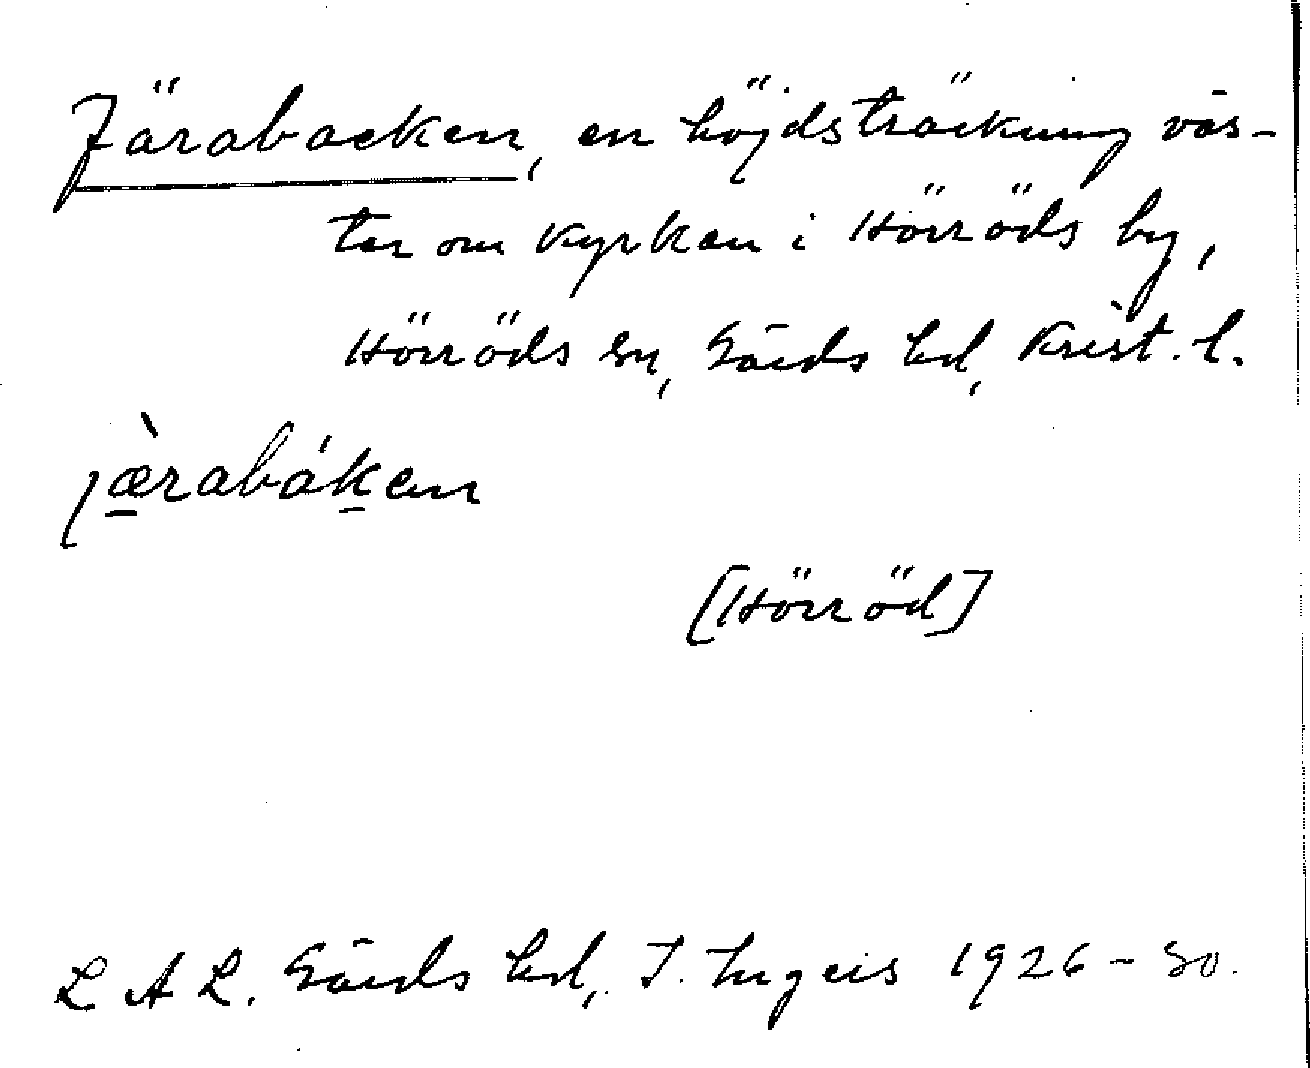 Järabacken, en höjdsträckning väs-
ter om kyrkan i Hörröds by,
Hörröds sn, Gärds hd, Krist. l.
jæ̀rabák̠en
[Hörröd]
L A L. Gärds hd, I. Ingers 1926-30.